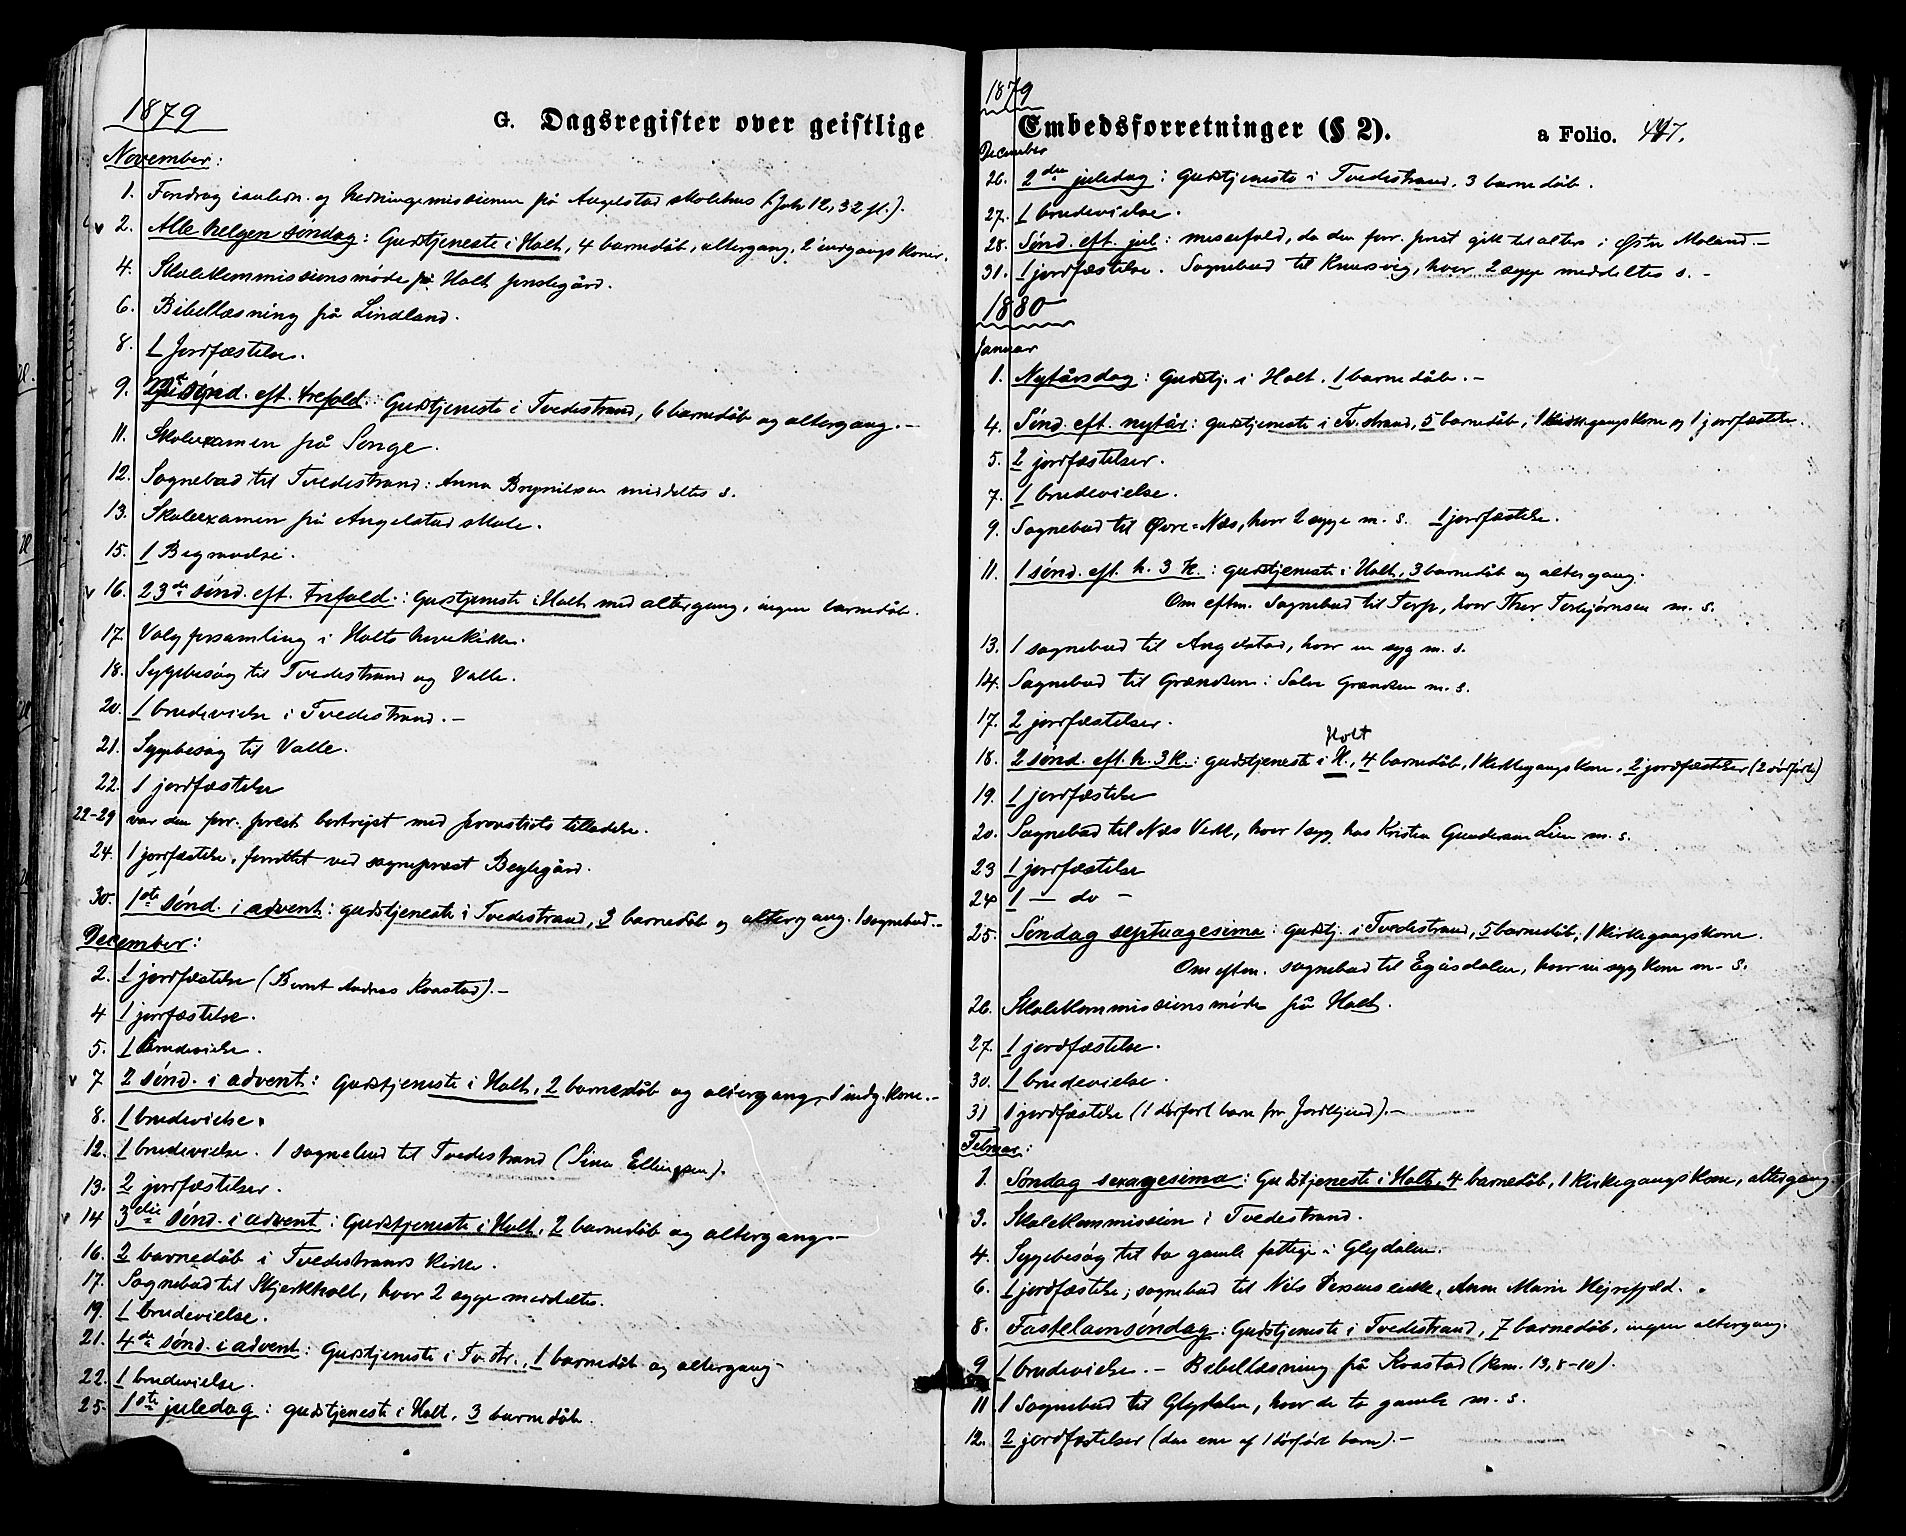 1879
G. Dagsregister over geistlige
November:
1. Foredrag og Hedningemissionen på Angelstad skolehus (Joh 12, 32 fl.).
2. Alle helgen søndag: Gudstjeneste i Holt, 4 barnedåb, altergang, 2 indgangskoner.
4. Skolekommissionsmøde på Holt prestegård.
6. Bibellæsning på Lindland.
8. 1 Jordfæstelse.
9. sønd. eft. trefold.: Gudstjeneste i Tvedestrand, 6 barnedåb og altergang. –
11. Skoleexamen på Songe.
12. Sognebud til Tvedestrand: Anna Brynilsen meddeltes s.
13. Skoleexamen på Angelstad skole.
15. 1 Begravelse.
16. 23de sønd. eft. trefold.: Gudstjeneste i Holt med altergang, ingen barnedåb.
17. Valgforsamling i Holts hovedkirke.
18. Sygebesøg til Tvedestrand og Valle.
20. 1 brudevielse i Tvedestrand. –
21. Sygebesøg til Valle.
22. 1 jordfæstelse
22-29 var den forr. prest bortrejst med provstiets tilladelse.
24. 1 jordfæstelse, forrettet ved sogneprest Beylegård.
30. 1ste sønd. i advent: gudstjeneste i Tvedestrand, 3 barnedåb og altergang. 1 sognebud. –
December:
2. 1 jordfæstelse (Bernt Andreas Kvastad). –
4 1 jordfæstelse.
5. 1 Brudevielse.
7 2 sønd. i advent: Gudstjeneste i Holt, 2 barnedåb og altergang, 1 indg.kone. –
8. 1 brudevielse.
12. 1 brudevielse. 1 sognebud til Tvedestrand (Sina Ellingsen).
13. 2 jordfæstelser.
14 3die sønd. i advent: Gudstjeneste i Holt, 2 barnedåb og altergang –
16. 2 barnedåb i Tvedestrands kirke.
17. Sognebud til Skjerkholt, hvor 2 syge meddeltes.
19. 1 brudevielse.
21. 4de sønd. i advent: Gudstjeneste i Tv.str., 1 barnedåb og altergang –
22. 1 brudevielse.
25. 1ste juledag: gudstjeneste i Holt, 3 barnedåb.
1879
Embedsforretninger (§ 2). a Folio. 447.
December
26. 2den juledag: Gudstjeneste i Tvedestrand, 3 barnedåb.
27. 1 brudevielse.
28. Sønd. eft. jul: messefald, da den forr. prest gik til alters i Østre Moland. –
31. 1 jordfæstelse. Sognebud til Knudsvig, hvor 2 syge meddeltes s. –
1880
Januar
1. Nytårsdag: Gudstj. i Holt. 1 barnedåb. –
4. Sønd. eft. nytår: gudstjeneste i Tv.strand, 5 barnedåb, 1 kirkegangskone og 1 jordfæstelse.
5. 2 jordfæstelser.
7. 1 brudevielse.
9. Sognebud til Øvre-Næs, hvor 2 syge m. s. 1 jordfæstelse.
11. 1 sønd. eft. h. 3 K.: gudstjeneste i Holt, 3 barnedåb og altergang.
Om eftm. Sognebud til Torp, hvor Thor Torbjørnsen m. s.
13. 1 sognebud til Angelstad, hvor en syg m. s.
14. Sognebud til Grændsen: Salve Grændsen m. s.
17. 2 jordfæstelser.
Holt
18. 2 sønd. eft. h. 3 K.: gudstjeneste i H., 4 barnedåb, 1 kirkegangskone, 2 jordfæstelser (2 dødfødte)
19. 1 jordfæstelse
20. Sognebud til Næs Verk, hvor 1 syg hos Kristen Gundersen Lien m. s.
23 1 jordfæstelse
24 1 — do –
25. Søndag septuagesima: gudstj. i Tvedestrand, 5 barnedåb, 1 kirkegangskone.
Om eftm. sognebud til Egåsdalen, hvor en syg kone m. s.
26. Skolekommissionsmøde på Holt.
27. 1 jordfæstelse.
30. 1 brudevielse.
31 1 jordfæstelse (1 dødfødt barn fra ). –
Februar:
1. Søndag sexagesima: Gudstjeneste i Holt, 4 barnedåb, 1 kirkegangskone, altergang.
3. Skolekommission i Tvedestrand.
4. Sygebesøg til to gamle fattige i Glydalen.
6. 1 jordfæstelse; sognebud til Nils enke, Anne Marie Hejrefjeld.
8. Fastelavnsøndag: Gudstjeneste i Tvedestrand, 7 barnedåb, ingen altergang.
9 1 brudevielse. – Bibellæsning på Kvastad (Rom. 13, 8–10).
11 1 Sognebud til Glydalen, hvor de to gamle m. s.
12. 2 jordfæstelser (den ene af 1 dødfødt barn). –